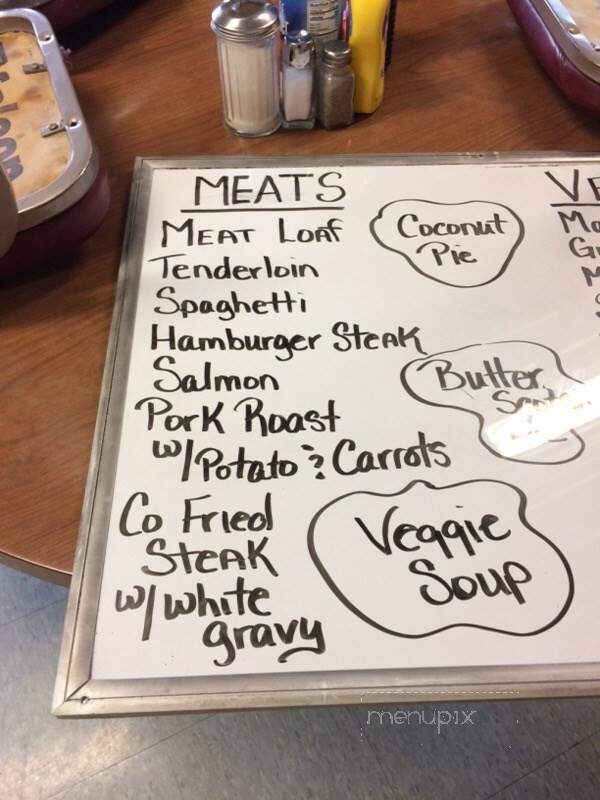 MEATS
MEAT LOAF
Tenderloin
Spaghetti
Hamburger STEAK
Salmon
PorK Roast
w/Potato & Carrots
Co Fried
STEAK
w/ white
gravy
Coconut
Pie
Butter
Veggie
Soup
menupix